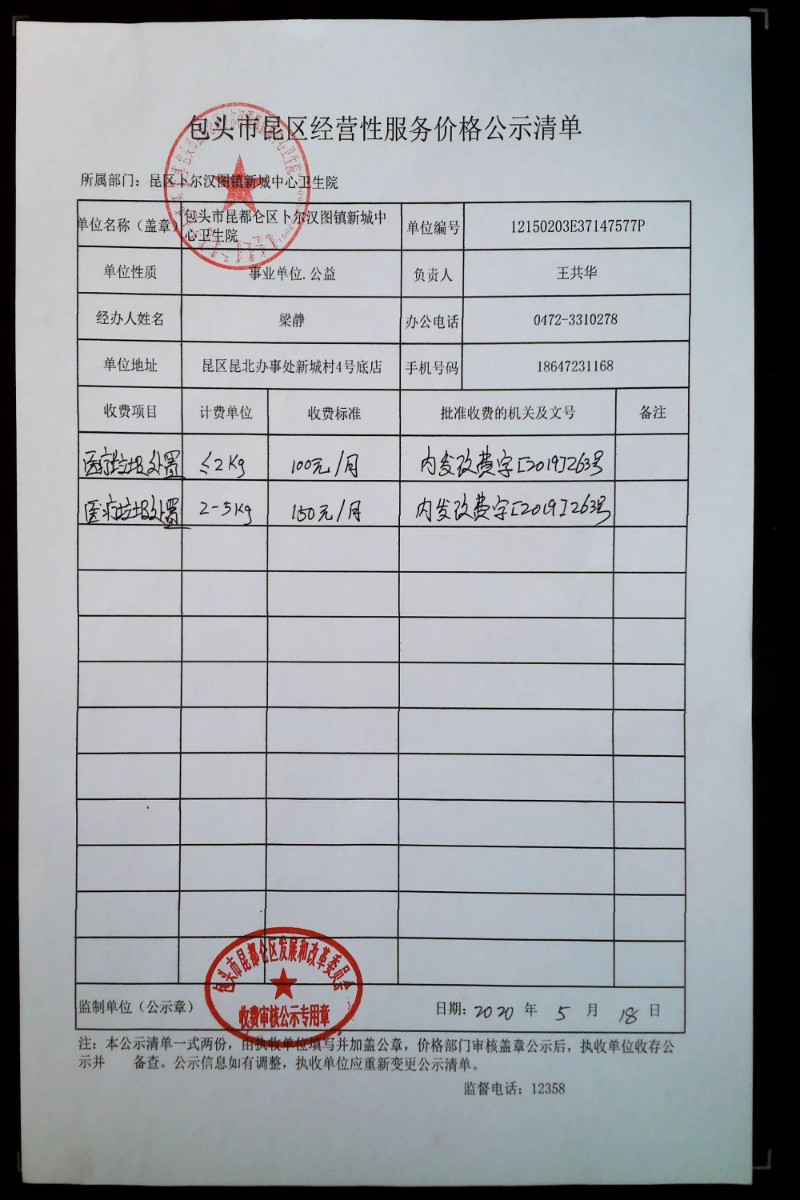 包头市昆区经营性服务价格公示清单
所属部门：昆区卜尔汉图镇新城中心卫生院
单位名称（盖章） 包头市昆都仑区卜尔汉图镇新城中心卫生院 单位编号 12150203E37147577P
单位性质 事业单位.公益 负责人 王共华
经办人姓名 梁静 办公电话 0472-3310278
单位地址 昆区昆北办事处新城村4号底店 手机号码 18647231168
收费项目 计费单位 收费标准 批准收费的机关及文号 备注
医疗垃圾处置 ≤2Kg 100元/月 内发改费字[2019]263号
医疗垃圾处置 2-5Kg 150元/月 内发改费字[2019]263号
包头市昆都仑区发展和改革委员会
收费审核公示专用章
监制单位（公示章） 日期：2020 年 5 月 18 日
注：本公示清单一式两份，由执收单位填写并加盖公章，价格部门审核盖章公示后，执收单位收存公
示并 备查。公示信息如有调整，执收单位应重新变更公示清单。
监督电话：12358